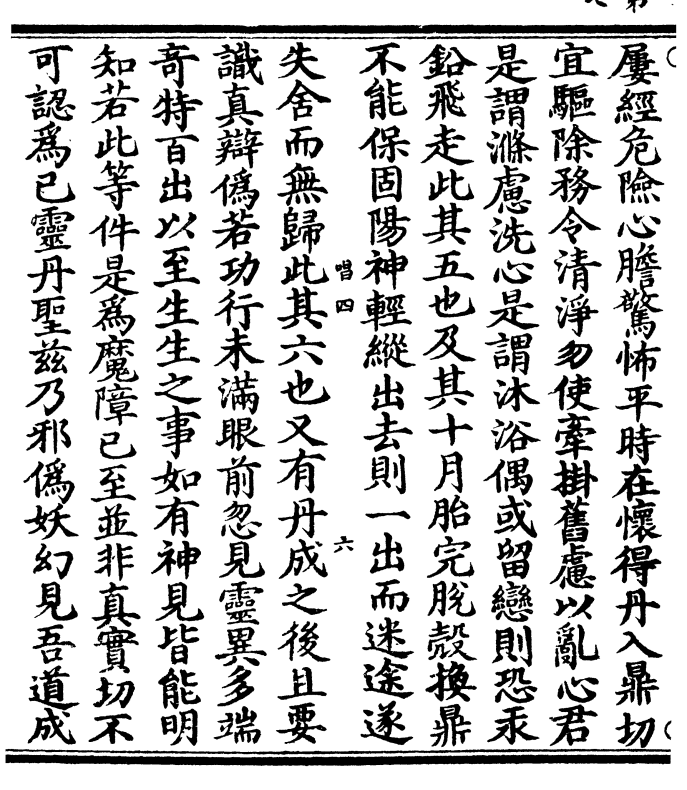 屢經危險心膽驚怖平時在懷得丹入鼎切
宜驅除務令清淨勿使牽掛舊慮以亂心君
是謂滌慮洗心是謂沐浴偶或留戀則恐汞
鉛飛走此其五也及其十月胎完脫殼換鼎
不能保固陽神輕縱出去則一出而迷途遂
唱四
六
失舍而無歸此其六也又有丹成之後且要
識真辯僞若功行未滿眼前忽見靈異多端
竒特百出以至生生之事如有神見皆能明
知若此等件是爲魔障已至並非真實切不
可認爲已靈丹聖兹乃邪僞妖幻見吾道成